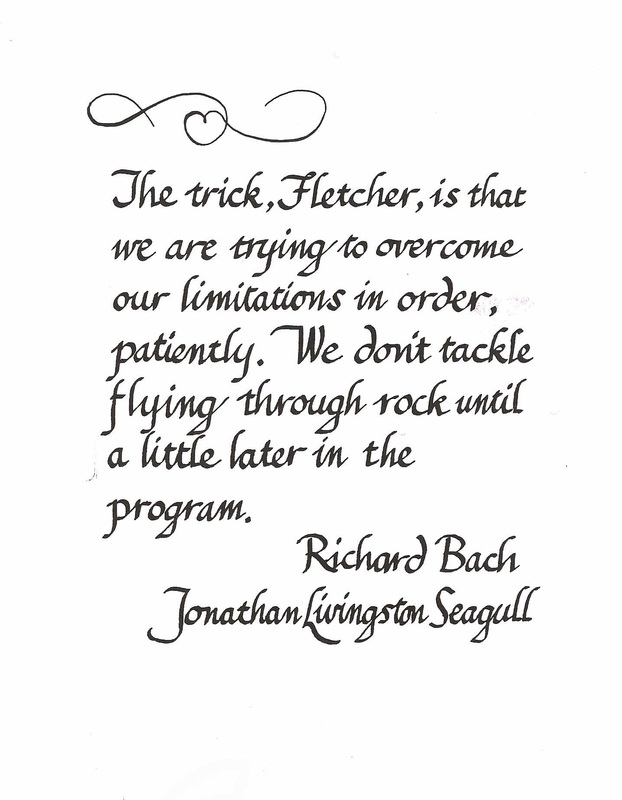 The trick, Fletcher, is that
we are trying to overcome
our limitations in order,
patiently. We don't tackle
flying through rock until
a little later in the
program.
Richard Bach
Jonathan Livingston Seagull